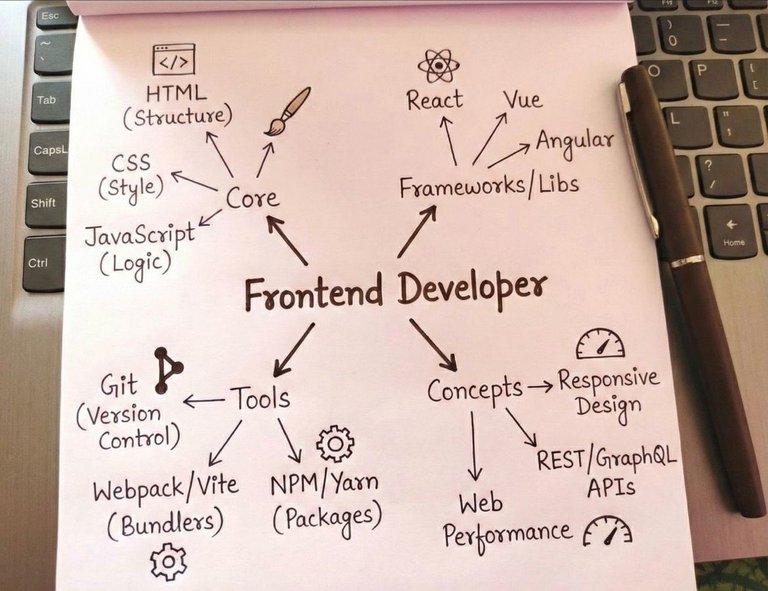 Esc
~
`
Tab
CapsL
Shift
Ctrl
)
0
_
-
O
P
{
[
L
"
'
?
/
←
Home
</>
HTML
(Structure)
CSS
(Style)
JavaScript
(Logic)
Core
React
Vue
Angular
Frameworks/Libs
Frontend Developer
Git
(Version
Control)
Tools
Webpack/Vite
(Bundlers)
NPM/Yarn
(Packages)
Concepts
Responsive
Design
REST/GraphQL
APIs
Web
Performance